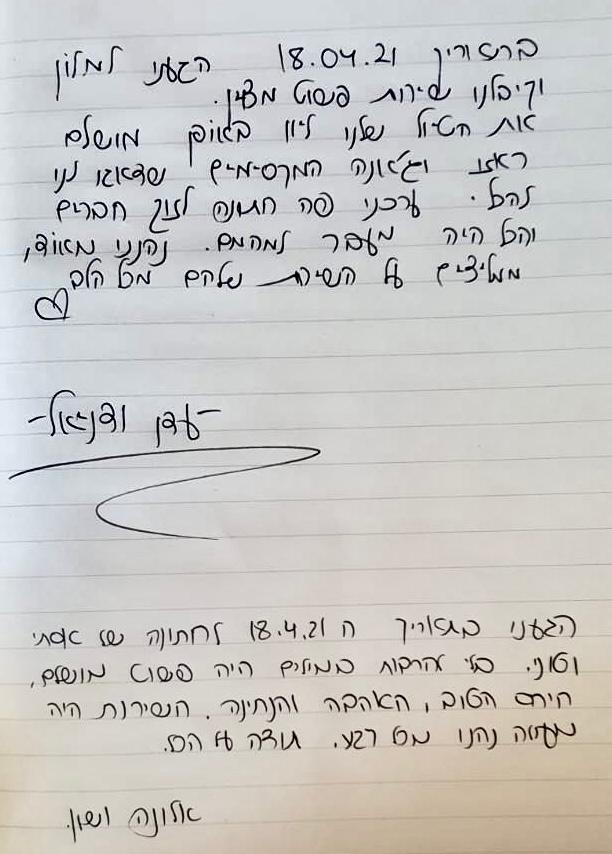 בתאריך 18.04.21 הגענו למלון
וקיבלנו שירות פשוט מצוין.
את הטיול שלנו ליוו באופן מושלם
ראזו המקסימים שדאגו לנו
להכל. ערכנו פה חתונה לזוג חברים
והכל היה מעבר למהמם. נהננו מאוד,
ממליצים על השירות שלהם מכל הלב
♡
-עדן ודניאל-
הגענו בתאריך ה 18.4.21 לחתונה של אסתי
וטוני. בלי להרבות במילים היה פשוט מושלם,
היחס הטוב, האהבה והנתינה. השירות היה
מעולה נהננו מכל רגע. תודה על הכל.
אלונה ושון.